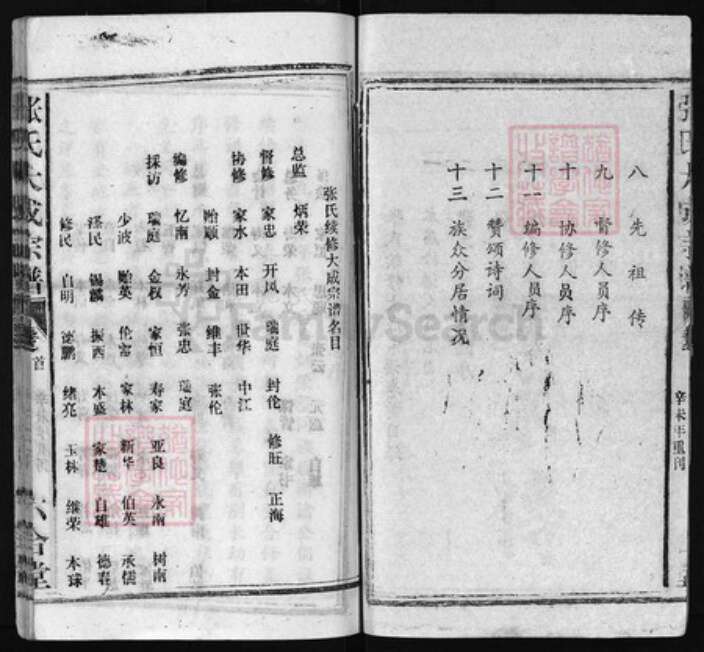 八 先祖传
九 督修人员序
十 协修人员序
十一 编修人员序
十二 赞颂诗词
十三 族众分居情况
辛未年重刊
张氏续修大成宗谱名目
总监 炳荣
督修 家忠 开风 瑞庭 封伦 修旺 正海
协修 家水 本田 世华 中江
贻顺 封金 维丰 张伦
编修 忆南 永芳 张忠 瑞庭
採访 瑞庭 金权 家恒 寿家 亚良 永南 树南
少波 贻英 伦富 家林 新华 伯英 承儒
泽民 锡麟 振西 本盛 家楚 自雄 德春
修民 自明 逵鹏 绪亮 玉林 维荣 本球
张氏大成宗谱
首
六合堂
FamilySearch